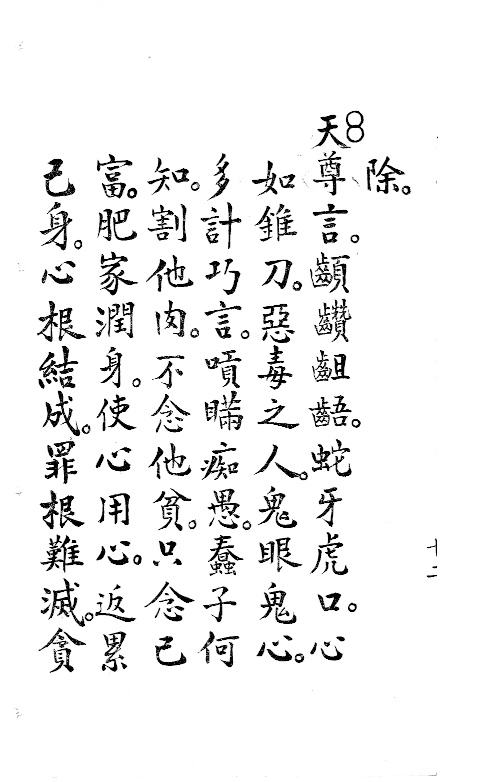 8
除。
天尊言。齟齬。蛇牙虎口。心
如錐刀。惡毒之人。鬼眼鬼心。
多計巧言。嘖瞞痴愚。蠢子何
知。割他肉。不念他貧。只念己
富。肥家潤身。使心用心。返累
己身。心根結成。罪根難滅。貪
十二